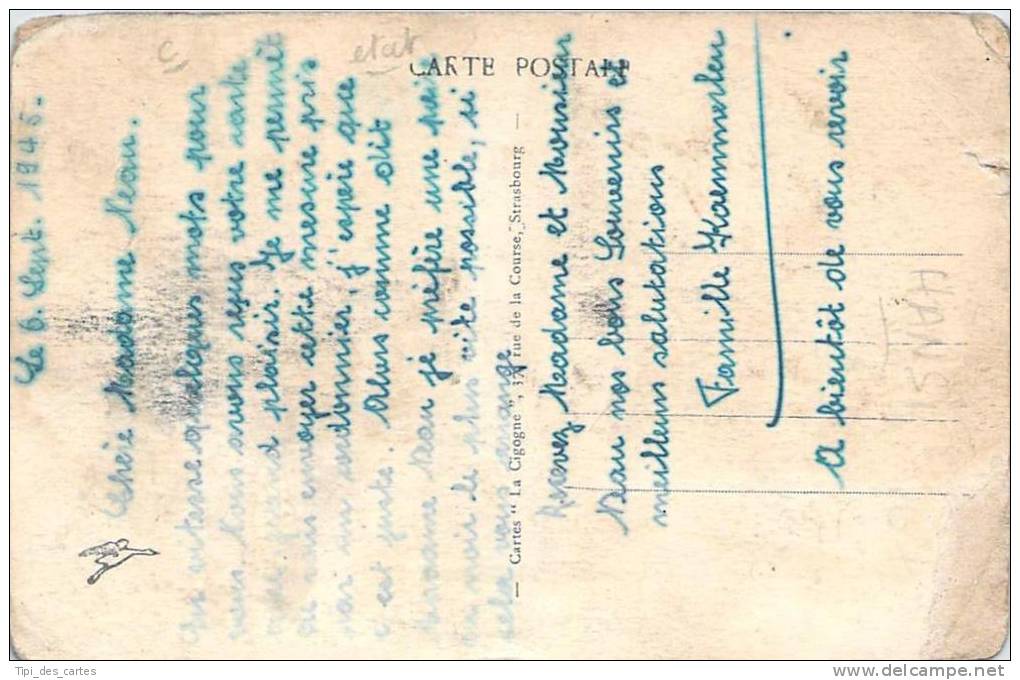 Le 6. Sept. 1945.
Chère Madame Nau.
quelques mots pour
nous avons reçu votre carte
grand plaisir. Je me permêt
de vous envoyer cette mesure pris
par mon cordonnier, j'espère que
c'est juste. Alors comme dit
Madame Nau je préfère une pair
en noir le plus vite possible, si
cela vous arrange
Recevez Madame et Monsieur
Nau nos bons Souvenirs et
meilleurs salutations
Famille Kammerlen
A bientôt de vous revoir
CARTE POSTALE
— Cartes “ La Cigogne ”, 37, rue de la Course, Strasbourg —
c
etat
Tipi_des_cartes
www.delcampe.net